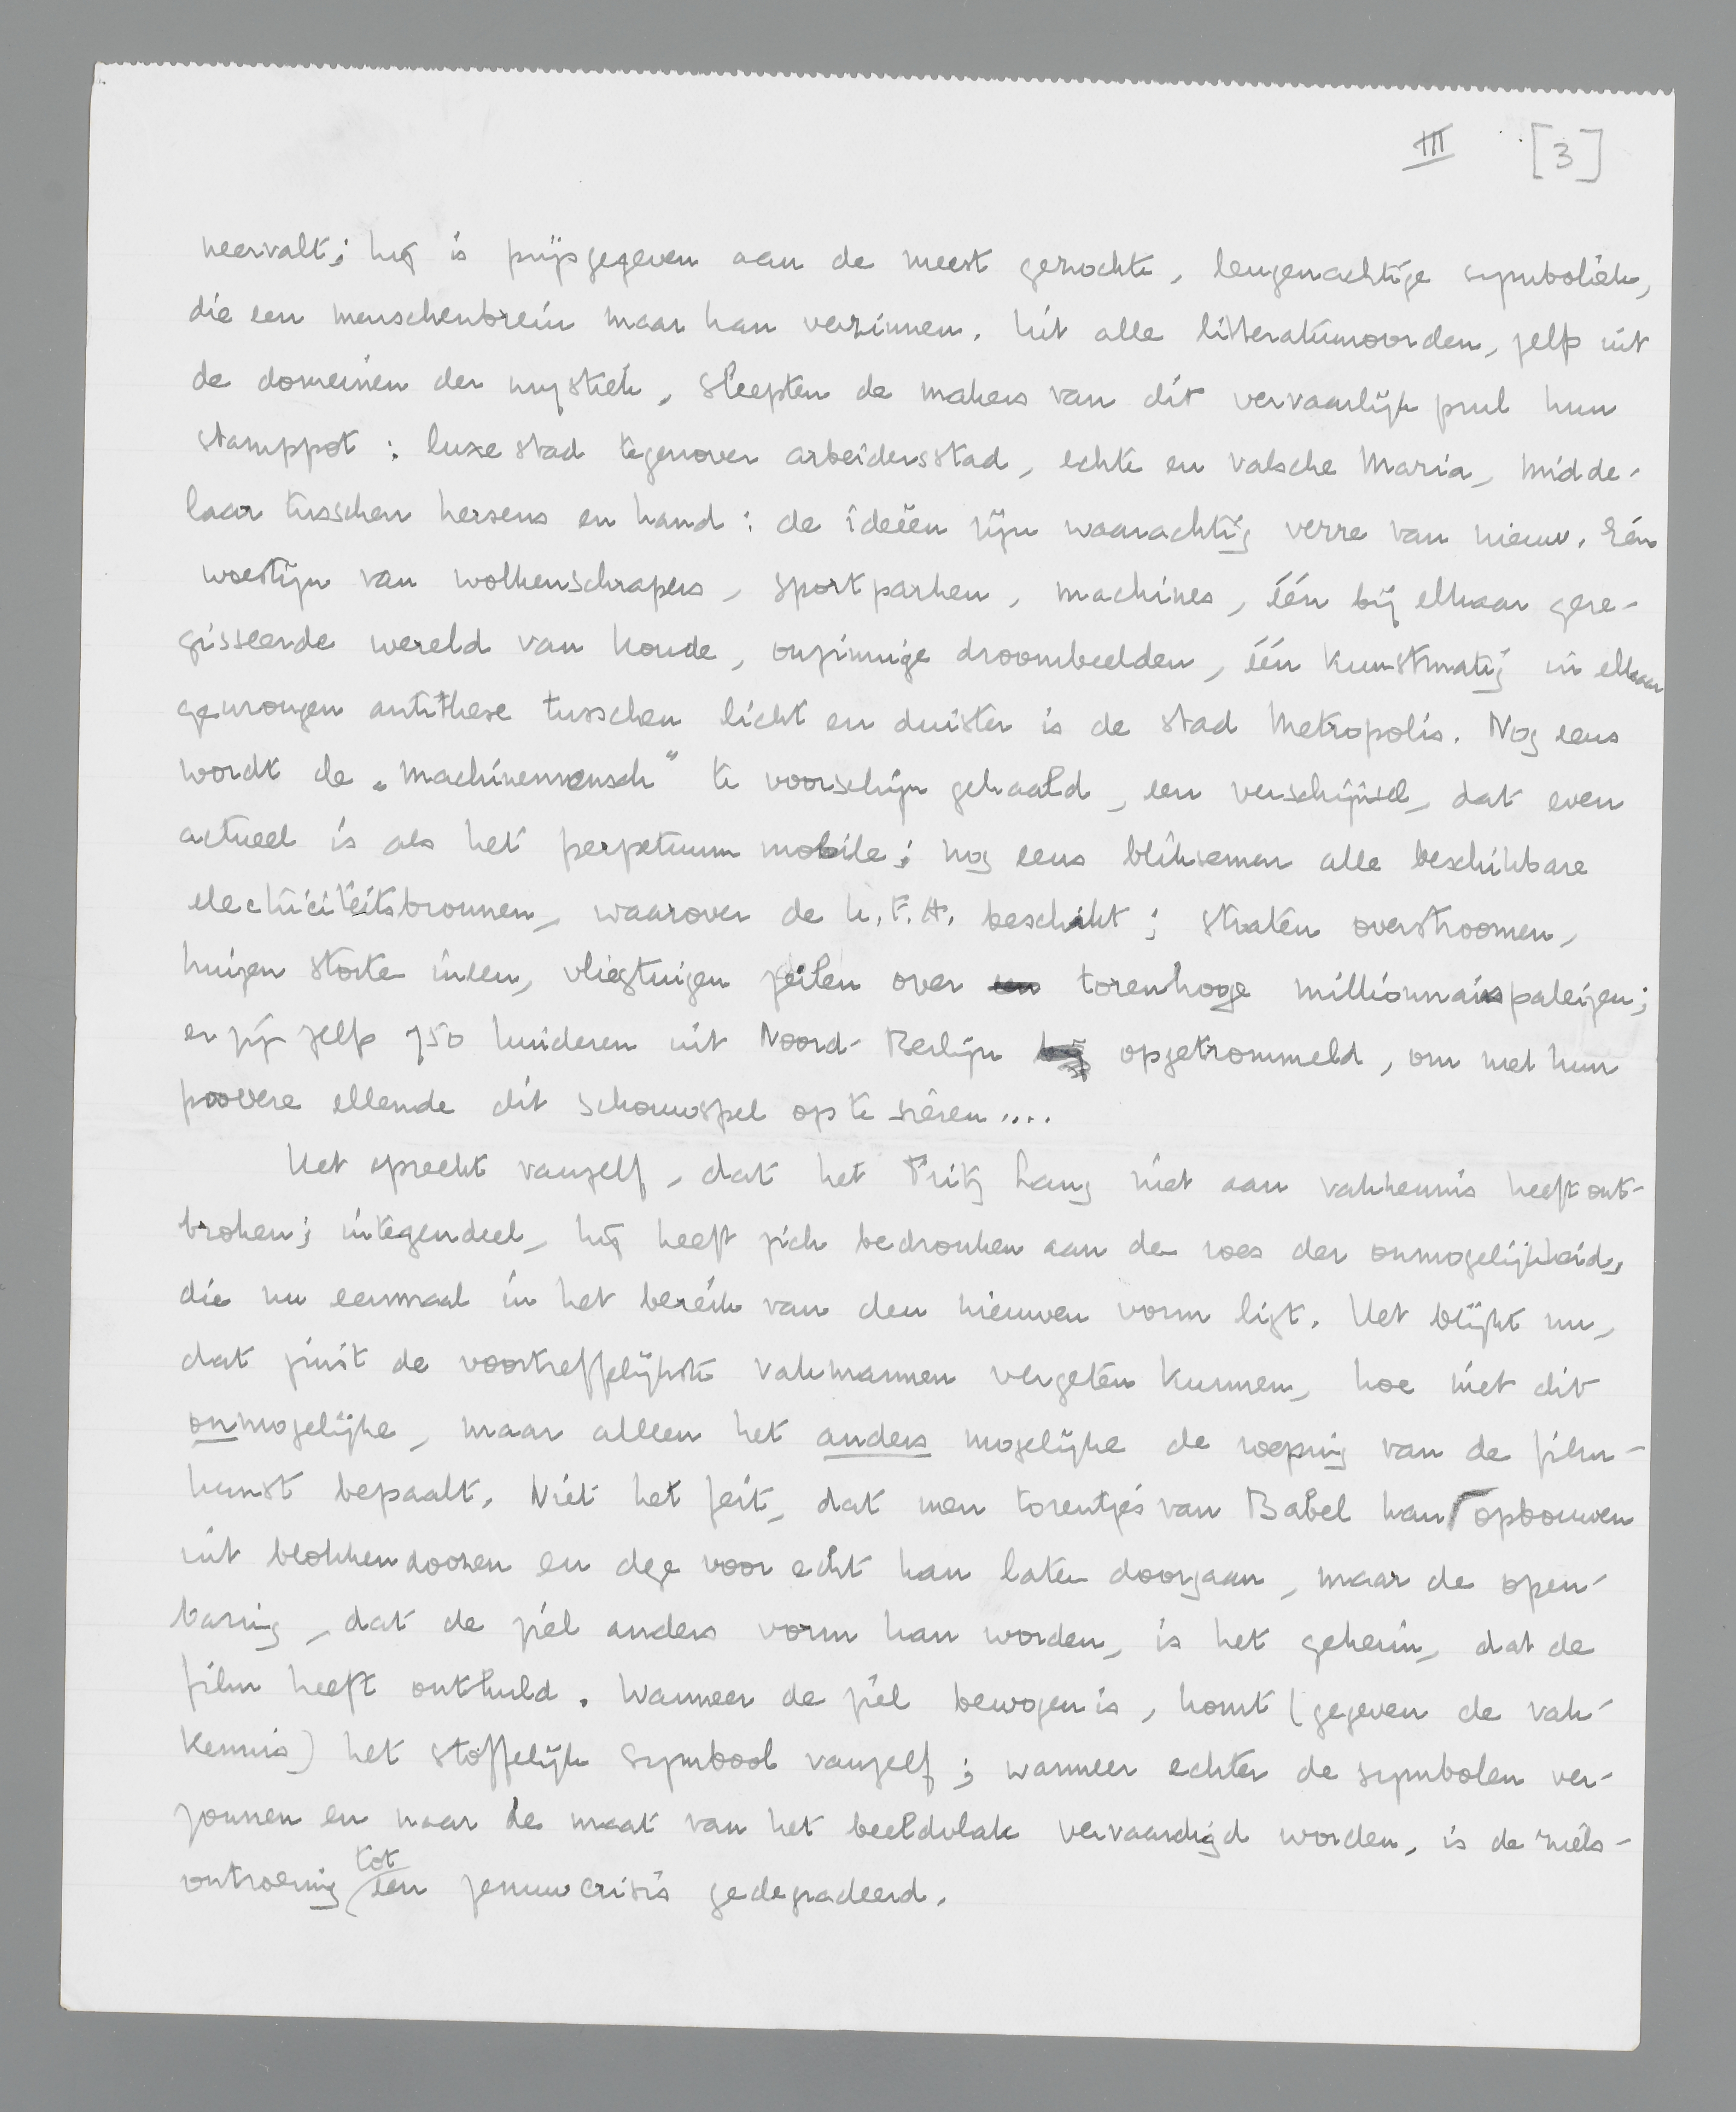 III [3]
neervalt; hij is prijsgegeven aan de meest gezochte, leugenachtige symboliek,
die een menschenbrein maar kan verzinnen. Uit alle litteratuuroorden, zelfs uit
de domeinen der mystiek, sleepten de makers van dit vervaarlijk prul hun
stamppot: luxe stad tegenover arbeidersstad, echte en valsche Maria, midde-
laar tusschen hersens en hand: de ideëen zijn waarachtig verre van nieuw. Eén
woestijn van wolkenschrapers, sportparken, machines, één bij elkaar gere-
gisseerde wereld van koude, onzinnige droombeelden, één kunstmatig in elkaar
gewrongen antithese tusschen licht en duister is de stad Metropolis. Nog eens
wordt de „machinemensch” te voorschijn gehaald, een verschijnsel, dat even
actueel is als het perpetuum mobile; nog eens bliksemen alle beschikbare
electriciteitsbronnen, waarover de U.F.A. beschikt; straten overstroomen,
huizen storten ineen, vliegtuigen zeilen over torenhooge millionnairspaleizen;
er zijn zelfs 750 kinderen uit Noord-Berlijn opgetrommeld, om met hun
poovere ellende dit schouwspel op te sieren....
Het spreekt vanzelf, dat het Fritz Lang niet aan vakkennis heeft ont-
broken; integendeel, hij heeft zich bedronken aan de roes der onmogelijkheid,
die nu eenmaal in het bereik van den nieuwen vorm ligt. Het blijkt nu,
dat juist de voortreffelijkste vakmannen vergeten kunnen, hoe niet dit
onmogelijke, maar alleen het anders mogelijke de roeping van de film-
kunst bepaalt. Niet het feit, dat men torentjes van Babel kan opbouwen
uit blokkendoozen en deze voor echt kan laten doorgaan, maar de open-
baring, dat de ziel anders vorm kan worden, is het geheim, dat de
film heeft onthuld. Wanneer de ziel bewogen is, komt (gegeven de vak-
kennis) het stoffelijk symbool vanzelf; wanneer echter de symbolen ver-
zonnen en naar de maat van het beeldvlak vervaardigd worden, is de ziels-
ontroering tot een zenuwcrisis gedegradeerd.